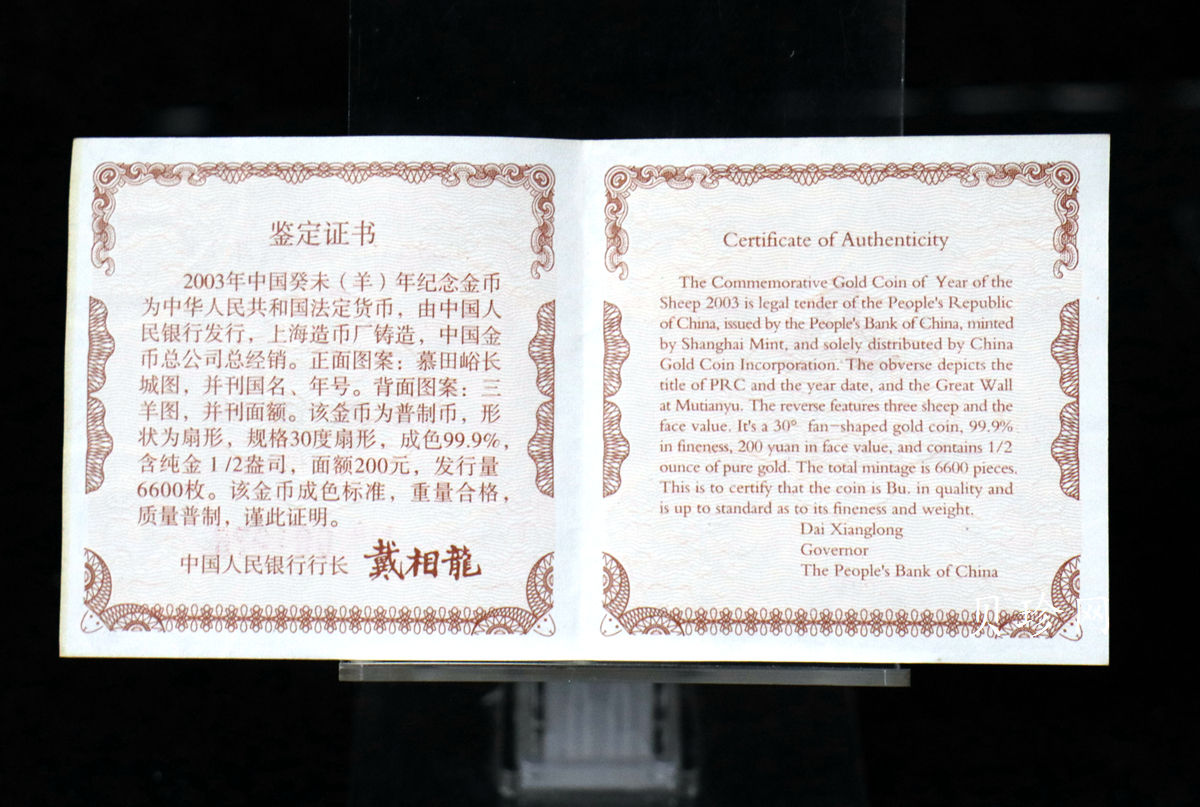 鉴定证书
2003年中国癸未（羊）年纪念金币
为中华人民共和国法定货币，由中国人
民银行发行，上海造币厂铸造，中国金
币总公司总经销。正面图案：慕田峪长
城图，并刊国名、年号。背面图案：三
羊图，并刊面额。该金币为普制币，形
状为扇形，规格30度扇形，成色99.9%，
含纯金1/2盎司，面额200元，发行量
6600枚。该金币成色标准，重量合格，
质量普制，谨此证明。
中国人民银行行长 戴相龍
Certificate of Authenticity
The Commemorative Gold Coin of Year of the
Sheep 2003 is legal tender of the People's Republic
of China, issued by the People's Bank of China, minted
by Shanghai Mint, and solely distributed by China
Gold Coin Incorporation. The obverse depicts the
title of PRC and the year date, and the Great Wall
at Mutianyu. The reverse features three sheep and the
face value. It's a 30° fan-shaped gold coin, 99.9%
in fineness, 200 yuan in face value, and contains 1/2
ounce of pure gold. The total mintage is 6600 pieces.
This is to certify that the coin is Bu. in quality and
is up to standard as to its fineness and weight.
Dai Xianglong
Governor
The People's Bank of China
贝珍网